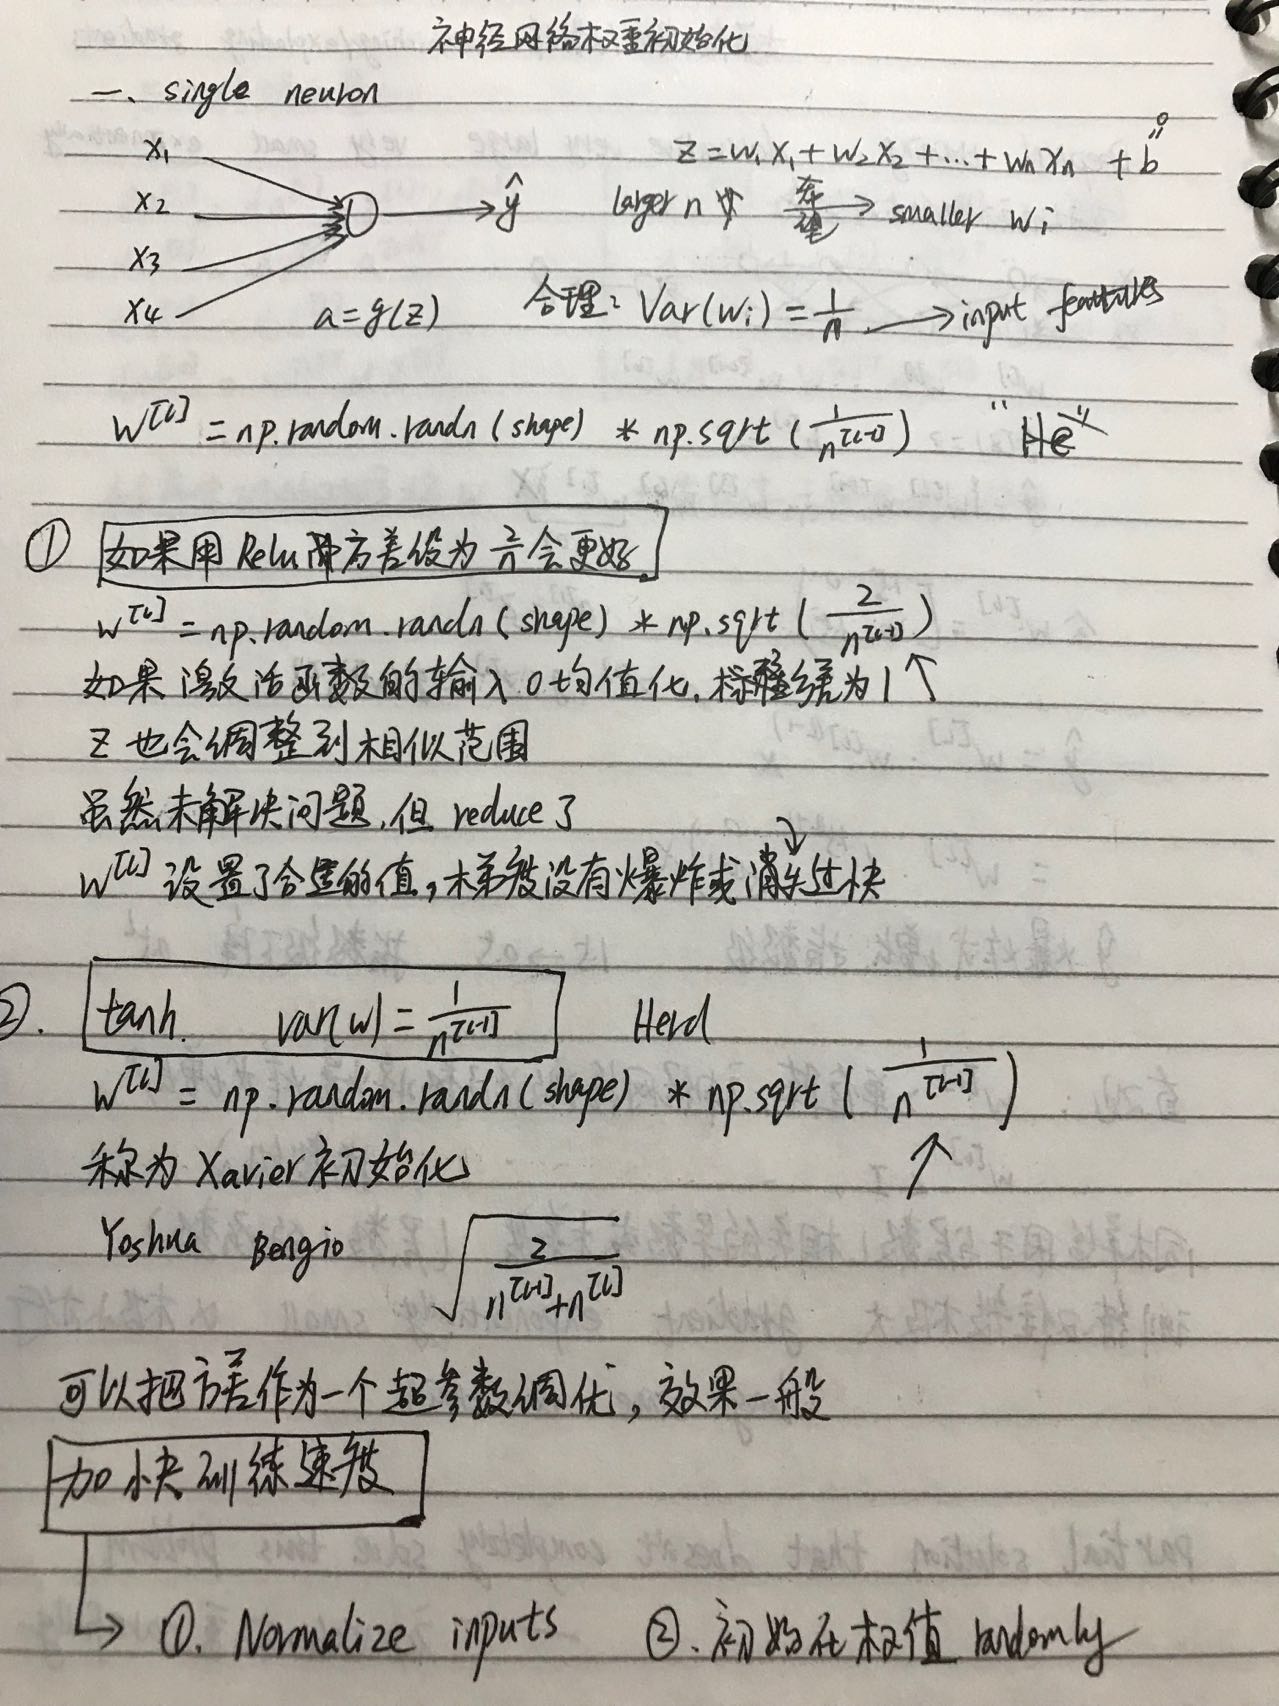 神经网络权重初始化
一、single neuron
x₁
x₂
x₃
x₄
ŷ
a=g(z)
z=w₁x₁+w₂x₂+…+wₙxₙ +b
0
larger n 希望 → smaller wᵢ
合理: Var(wᵢ)=1/n → input features
w^[l] = np.random.randn(shape) * np.sqrt(1/n^[l-1]) "He"
① 如果用Relu 方差设为 2/n 会更好
w^[l] = np.random.randn(shape) * np.sqrt(2/n^[l-1])
如果激活函数的输入0均值化,标准差为1 ↑
z也会调整到相似范围
虽然未解决问题,但 reduce 了
w^[l] 设置了合适的值,梯度没有爆炸或消失过快
②. tanh. var(w)=1/n^[l-1] Herd
w^[l] = np.random.randn(shape) * np.sqrt(1/n^[l-1])
称为Xavier初始化 ↑
Yoshua Bengio √(2/(n^[l-1]+n^[l]))
可以把方差作为一个超参数调优,效果一般
加快训练速度
→ ①. Normalize inputs ②. 初始化权值 randomly